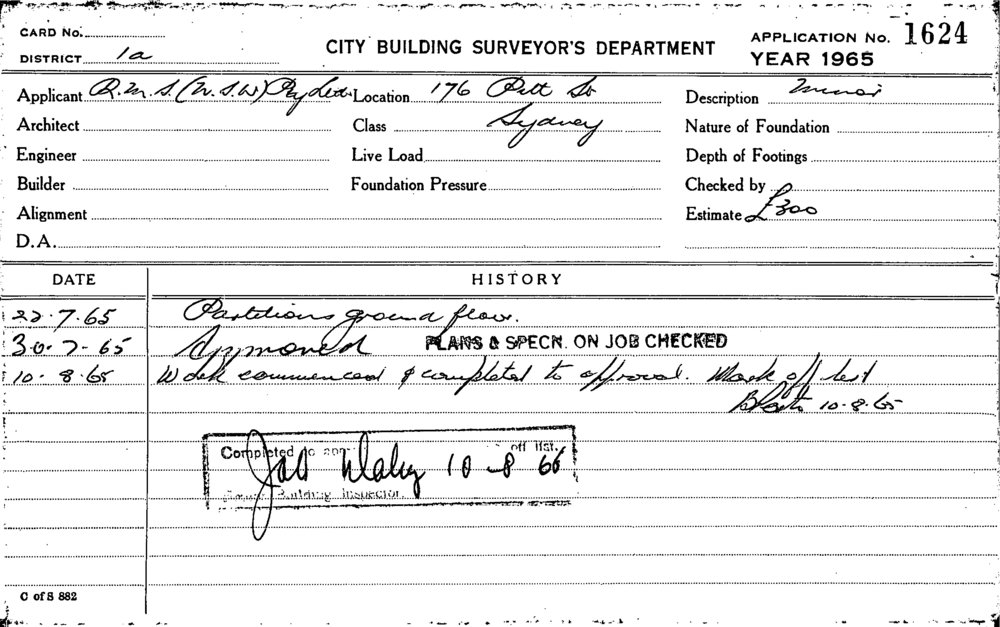 CARD No.
DISTRICT 1a
CITY BUILDING SURVEYOR'S DEPARTMENT
APPLICATION No. 1624
YEAR 1965
Applicant R.M.S. (N.S.W) Pty Ltd
Location 176 Pitt St Sydney
Description Minor
Architect
Class
Nature of Foundation
Engineer
Live Load
Depth of Footings
Builder
Foundation Pressure
Checked by
Alignment
Estimate £300
D.A.
DATE HISTORY
22.7.65 Partitions ground floor.
30.7-65 Approved PLANS & SPECN. ON JOB CHECKED
10-8.65 Work commenced & completed to approval. Mark off list
10-8-65
Completed to off list.
10-8 66
Building Inspector.
C of S 882